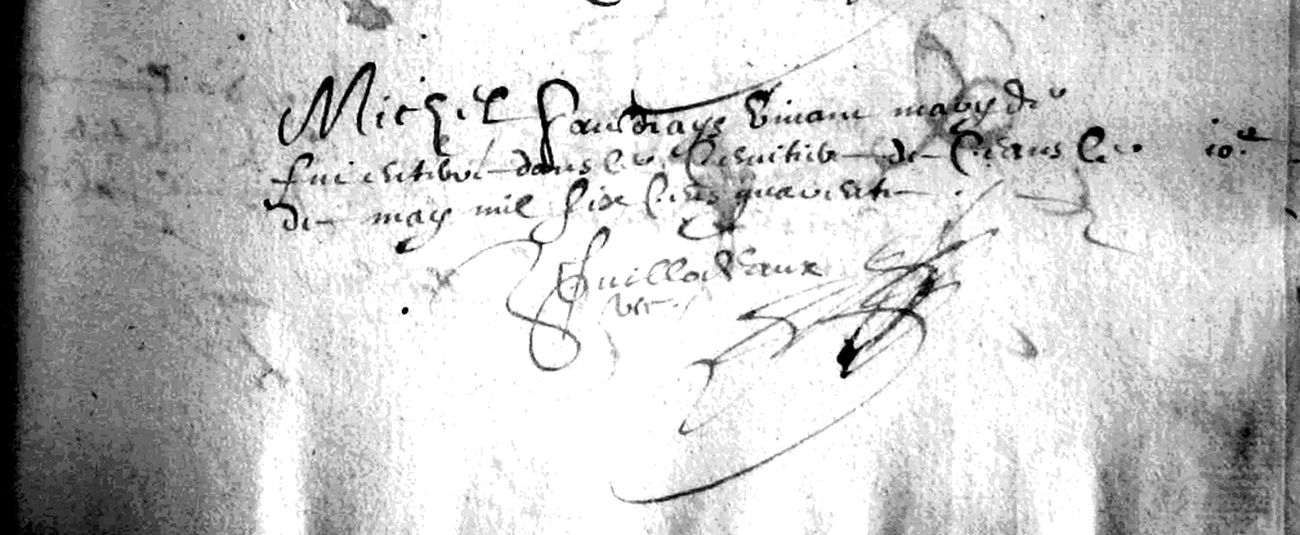 Michel Gaudrays vivant mary de
fut enterré dans le cimitiere de ceans le 10.e
de may mil six cens quarente .
Guilloteaux